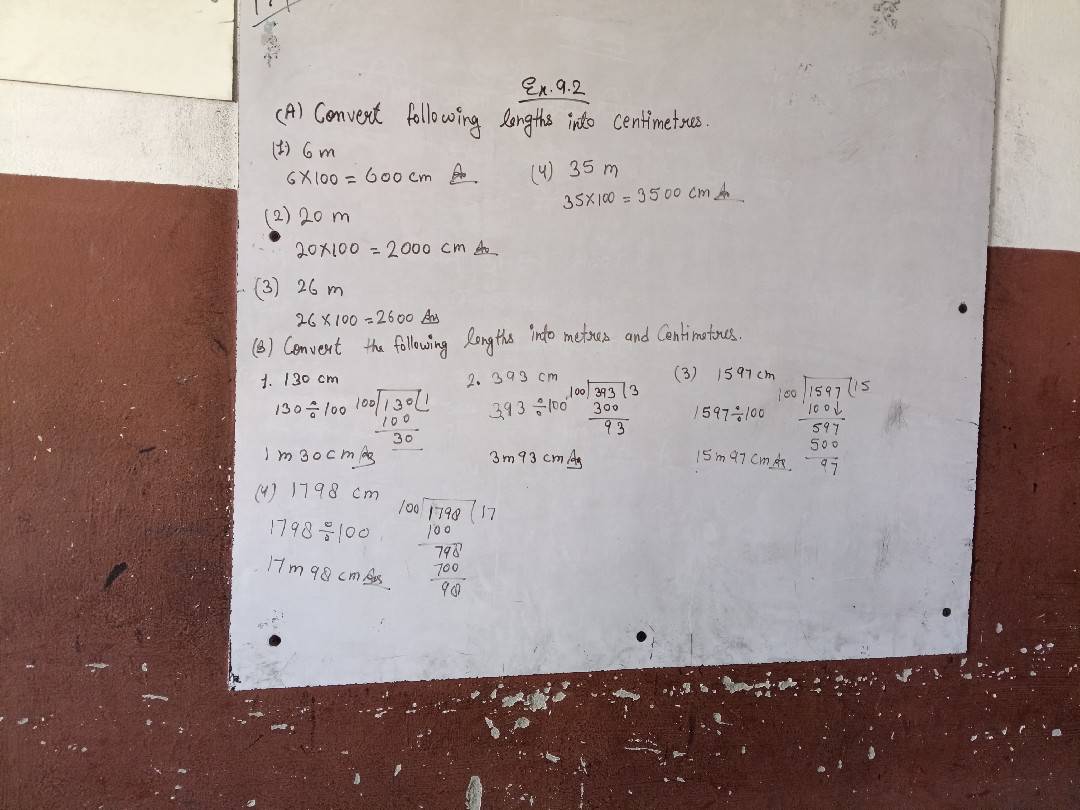 Ex. 9.2
(A) Convert following lengths into centimetres.
(1) 6 m
6×100 = 600 cm Ans
(2) 20 m
20×100 = 2000 cm Ans
(3) 26 m
26×100 = 2600 Ans
(4) 35 m
35×100 = 3500 cm Ans
(B) Convert the following lengths into metres and Centimetres.
1. 130 cm
130÷100 100)130(1
100
30
1 m 30 cm Ans
2. 393 cm
393÷100 100)393(3
300
93
3m 93 cm Ans
(3) 1597 cm
1597÷100 100)1597(15
100↓
597
500
97
15 m 97 cm Ans
(4) 1798 cm
1798÷100 100)1798(17
100
798
700
98
17 m 98 cm Ans